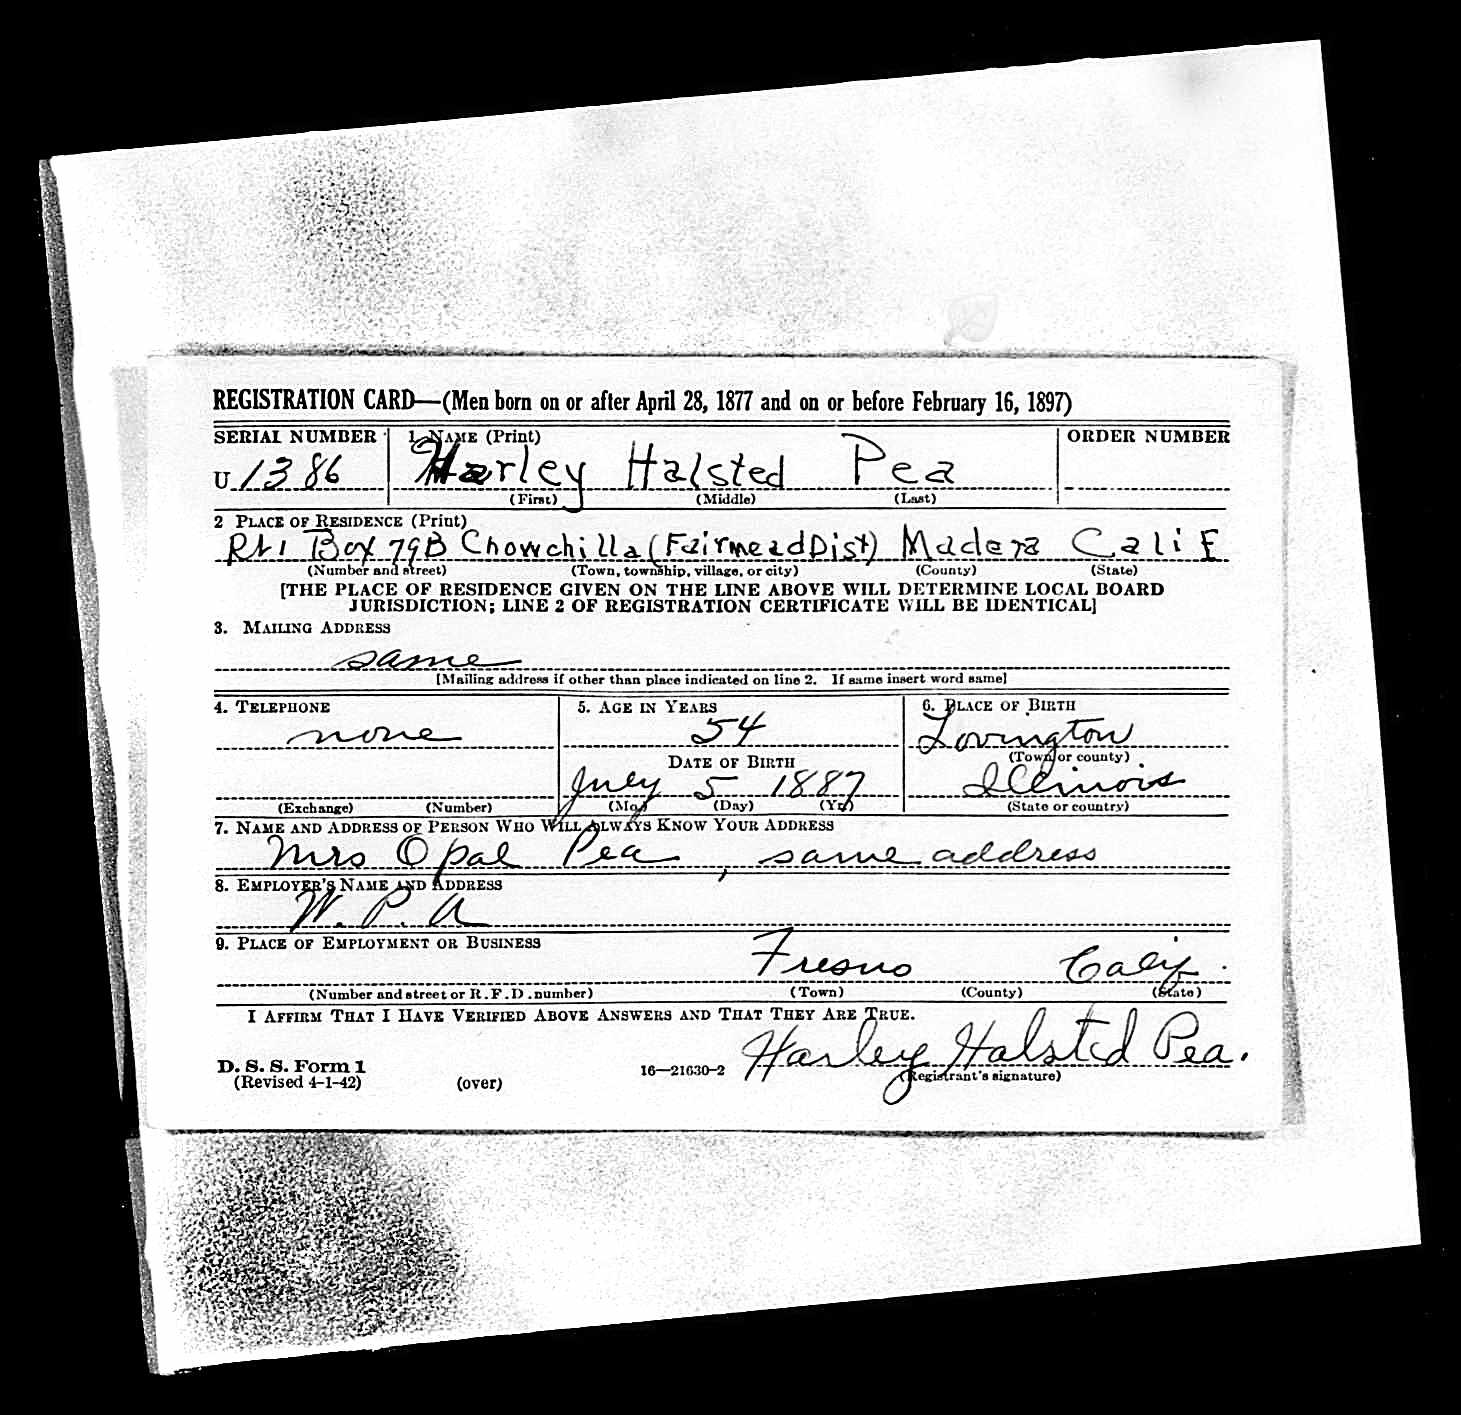 REGISTRATION CARD—(Men born on or after April 28, 1877 and on or before February 16, 1897)
SERIAL NUMBER 1. NAME (Print) ORDER NUMBER
U 1386 Harley Halsted Pea
(First) (Middle) (Last)
2 PLACE OF RESIDENCE (Print)
Rt 1 Box 79B Chowchilla (Fairmead Dist) Madera Calif
(Number and street) (Town, township, village, or city) (County) (State)
[THE PLACE OF RESIDENCE GIVEN ON THE LINE ABOVE WILL DETERMINE LOCAL BOARD
JURISDICTION; LINE 2 OF REGISTRATION CERTIFICATE WILL BE IDENTICAL]
3. MAILING ADDRESS
same
[Mailing address if other than place indicated on line 2. If same insert word same]
4. TELEPHONE 5. AGE IN YEARS 6. PLACE OF BIRTH
none 54 Lovington
DATE OF BIRTH (Town or county)
July 5 1887 Illinois
(Exchange) (Number) (Mo.) (Day) (Yr.) (State or country)
7. NAME AND ADDRESS OF PERSON WHO WILL ALWAYS KNOW YOUR ADDRESS
Mrs Opal Pea, same address
8. EMPLOYER'S NAME AND ADDRESS
W. P. A
9. PLACE OF EMPLOYMENT OR BUSINESS
Fresno Calif.
(Number and street or R. F. D. number) (Town) (County) (State)
I AFFIRM THAT I HAVE VERIFIED ABOVE ANSWERS AND THAT THEY ARE TRUE.
Harley Halsted Pea.
D. S. S. Form 1
(Revised 4-1-42) (over) 16—21630-2 (Registrant's signature)